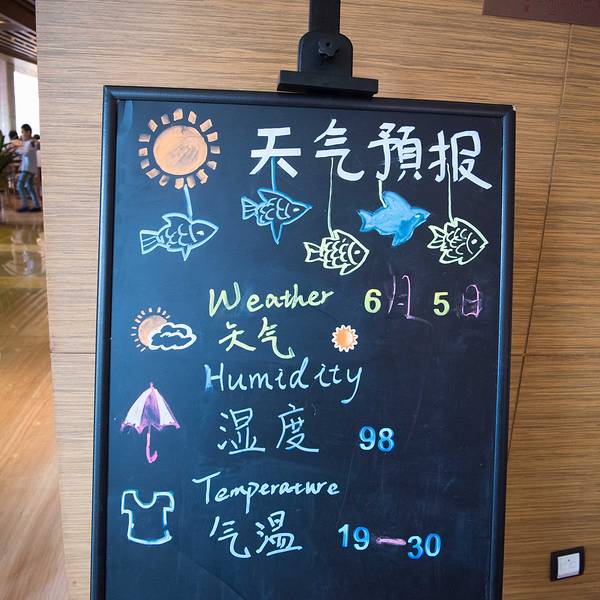 天气預报
Weather 6月5日
天气
Humidity
湿度 98
Temperature
气温 19-30